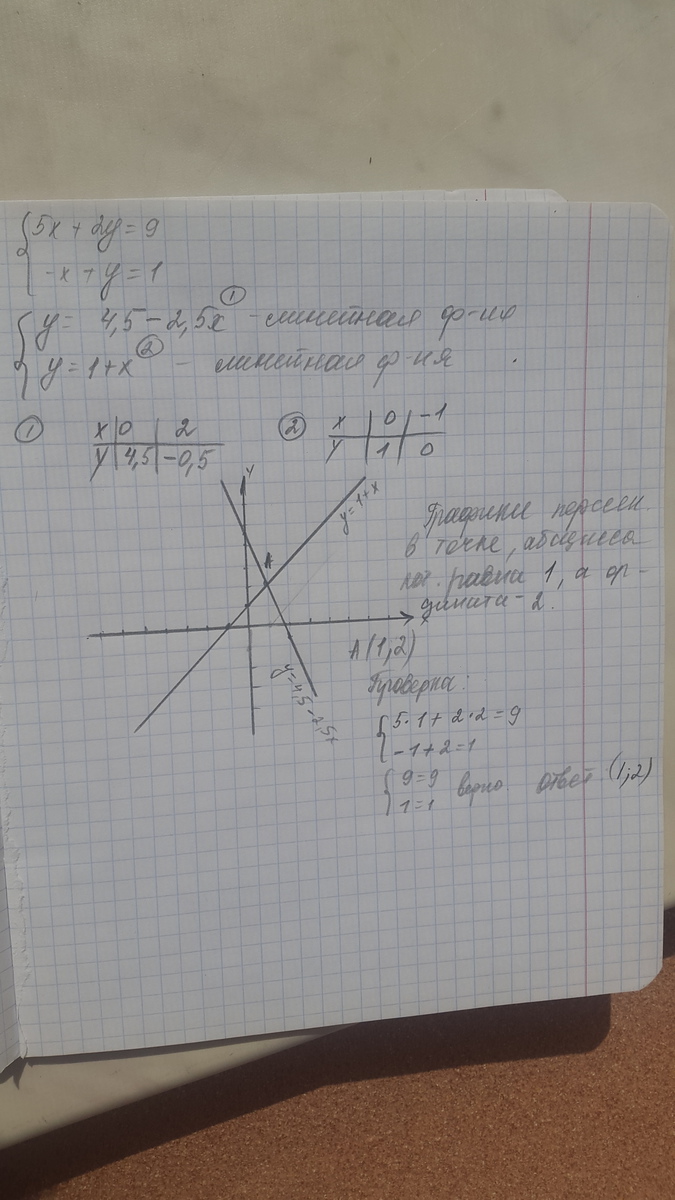 5x + 2y = 9
-x + y = 1
y = 4,5 - 2,5x ① - линейная ф-ия
y = 1 + x ② - линейная ф-ия
① x 0 2
y 4,5 -0,5
② x 0 -1
y 1 0
y
y=1+x
A
x
y=4,5-2,5x
Графики пересек.
в точке, абсцисса
кот. равна 1, а ор-
дината - 2.
A(1,2)
Проверка:
5·1 + 2·2 = 9
-1 + 2 = 1
9 = 9
1 = 1
верно ответ (1;2)